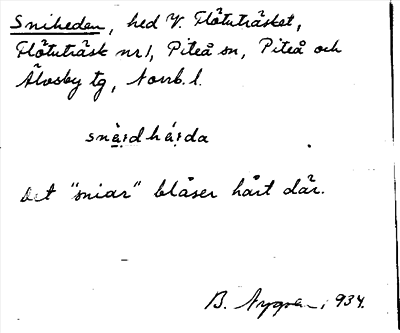 Sniheden, hed V. Flötuträsket,
Flötuträsk nr 1, Piteå sn, Piteå och
Älvsby tg, Norrb. l.
snè̤ᴉdhá̤ᴉda
Det "sniar" blåser hårt där.
B. Nygren, 1934.